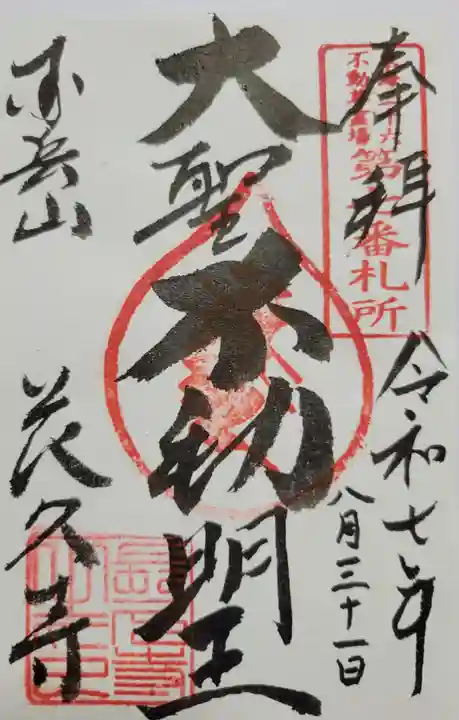 奉拝
不動尊霊場
第七番札所
令和七年
八月三十一日
大聖不動明王
花久寺